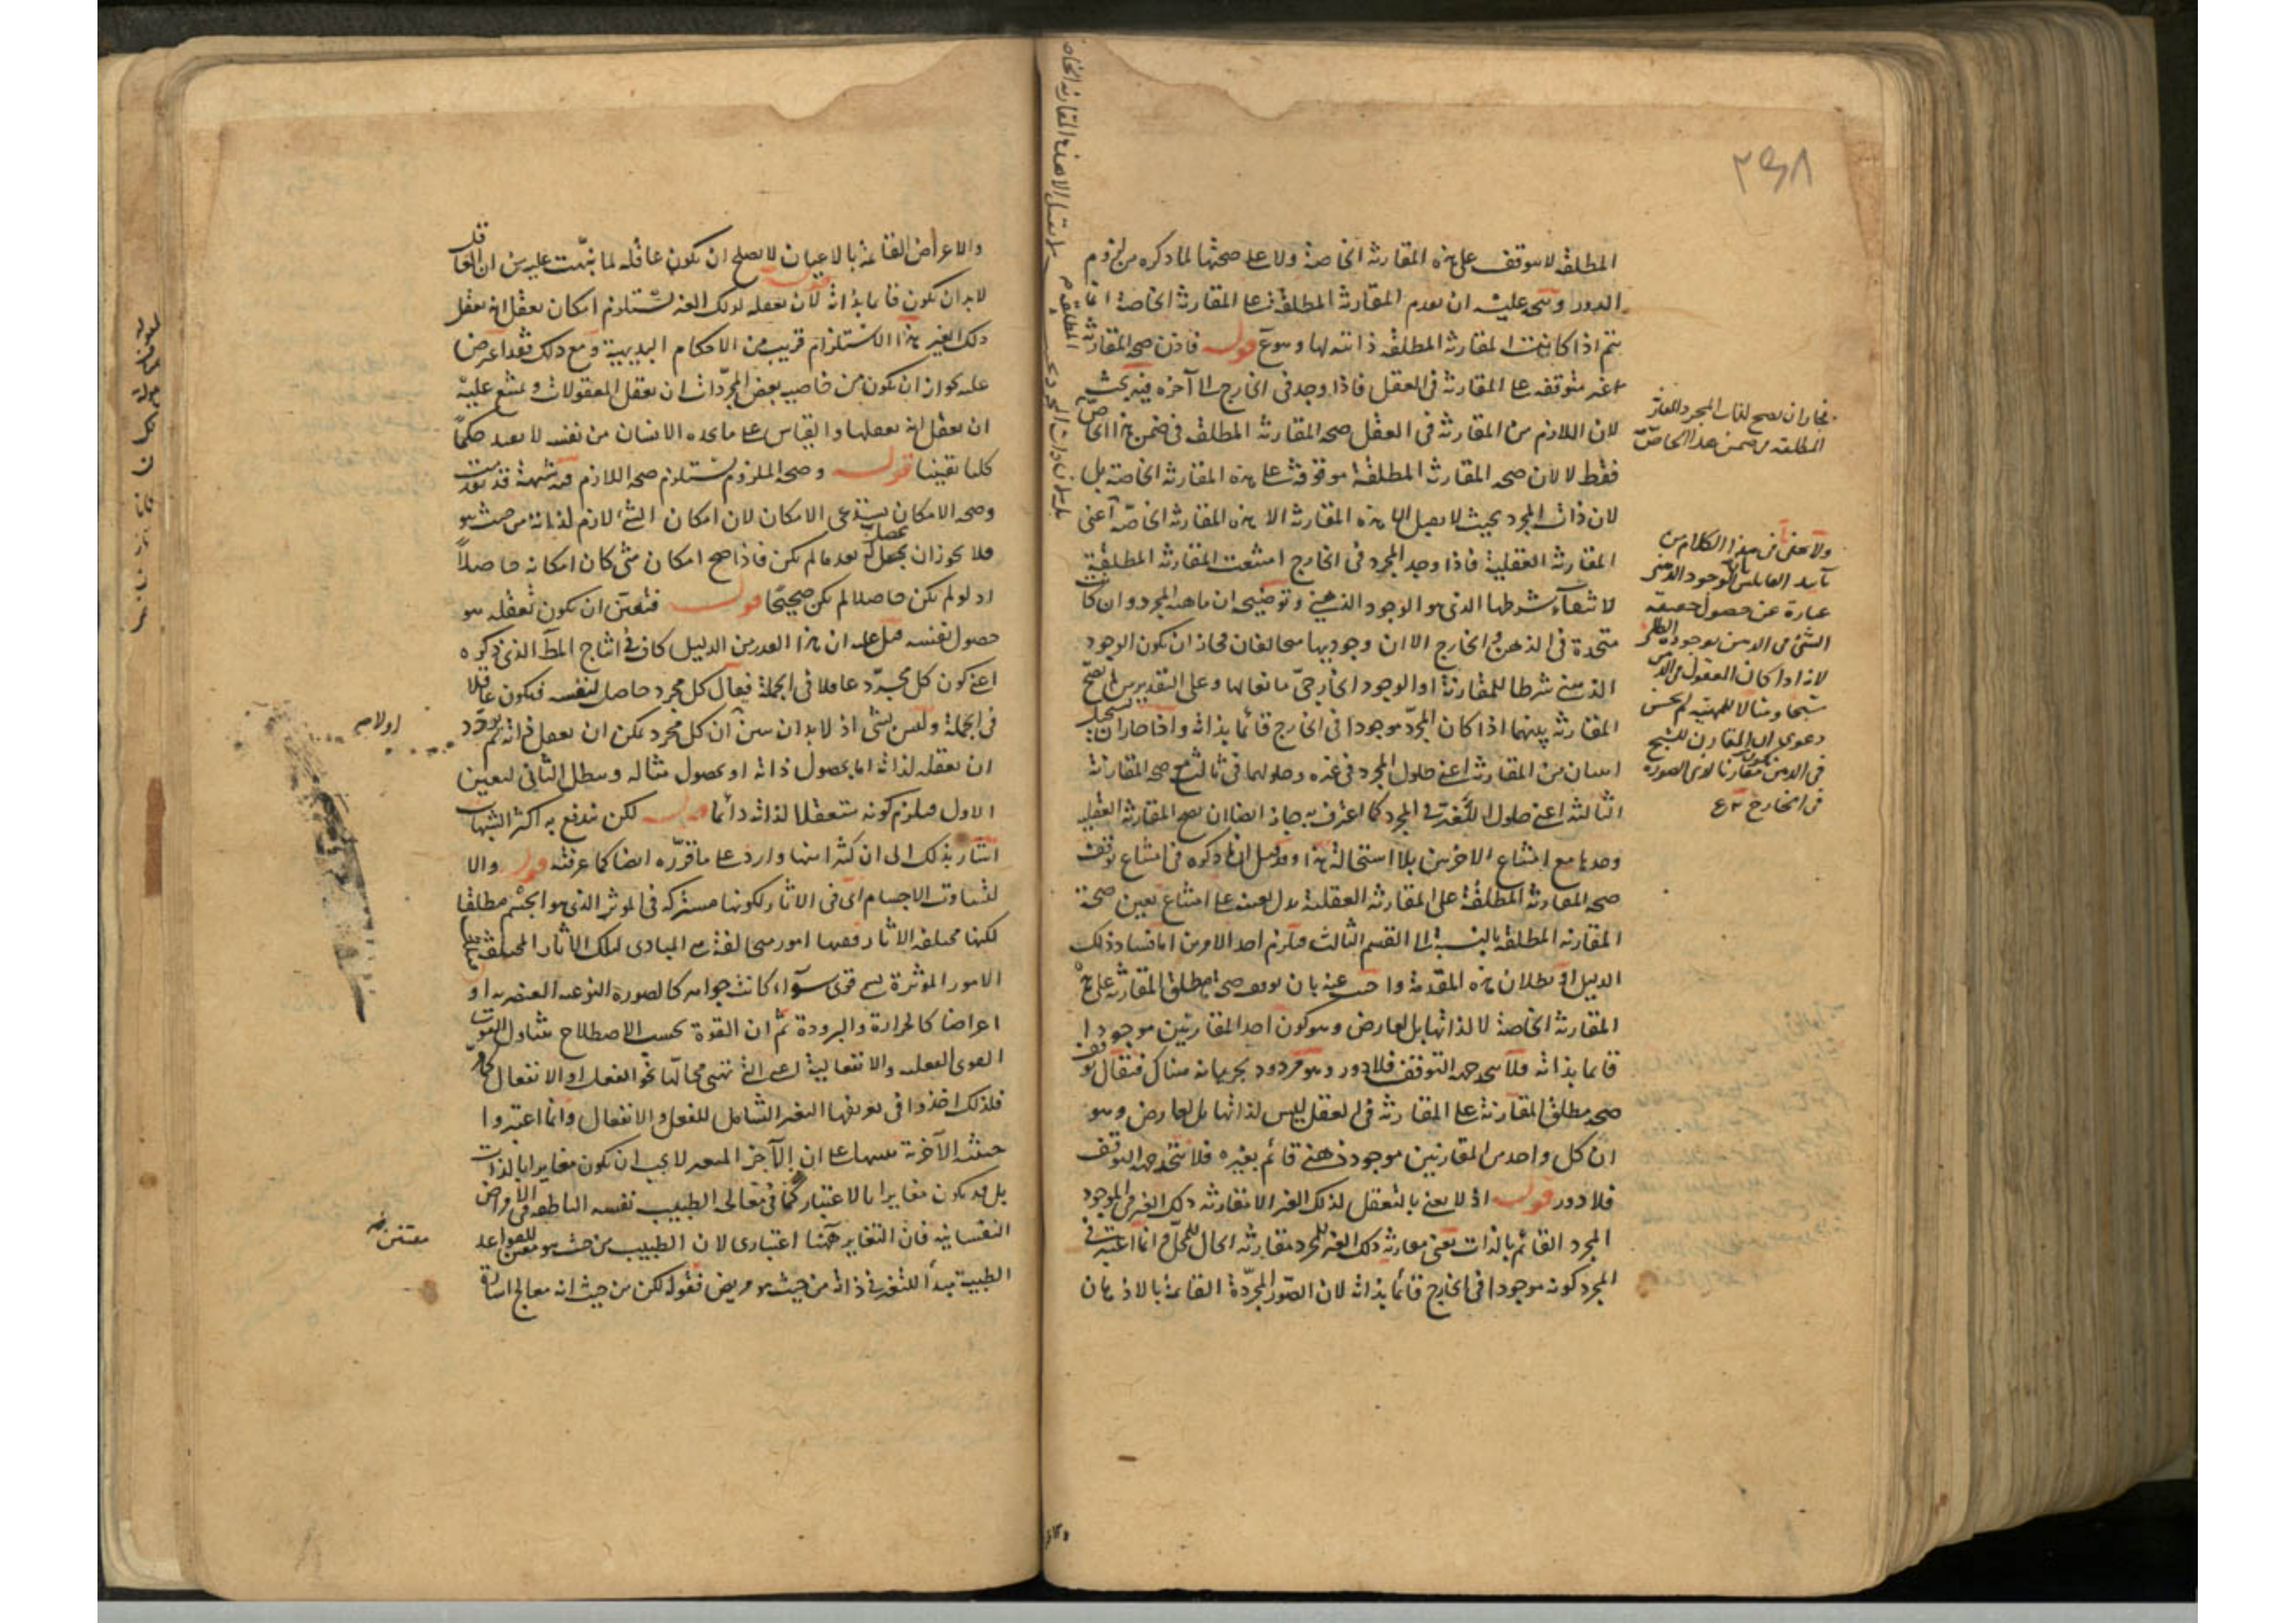 المطلقة لا يتوقف على هذه المقارنة الخاصة ولا على صحتها لما ذكره من لزوم
الدور ويتجه عليه ان تقدم المقارنة المطلقة على المقارنة الخاصة انما
يتم اذا كانت المقارنة المطلقة ذاتية لها وهو م قوله فاذن صحة المقارنة
غير متوقفة على المقارنة في العقل فاذا وجد في الخارج الى آخره فيه بحث
لان اللازم من المقارنة في العقل صحة المقارنة المطلقة في ضمن هذا الخاص
فقط لا لان صحة المقارنة المطلقة موقوفة على هذه المقارنة الخاصة بل
لان ذات المجرد بحيث لا يقبل الا هذه المقارنة الخاصة اعنى
المقارنة العقلية فاذا وجد المجرد في الخارج امتنعت المقارنة المطلقة
لانتفاء شرطها الذي هو الوجود الذهني وتوضيحه ان ماهية المجرد وان كانت
متحدة في الذهن والخارج الا ان وجوديها متخالفان فجاز ان يكون الوجود
الذهني شرطا للمقارنة او الوجود الخارجي مانعا لها وعلى التقديرين لم يصح
المقارنة بينهما اذا كان المجرد موجودا في الخارج قائما بذاته واذا جاز ان يستحيل
اثنان من المقارنة اعني حلول المجرد في غيره وحلولهما في ثالث مع صحة المقارنة
الثالثة اعني حلول الغير في المجرد كما اعترف به جاز ايضا ان يصح المقارنة العقلية
وحدها مع امتناع الاخرين بلا استحالة هذا وقد قيل ان ما ذكره في امتناع توقف
صحة المقارنة المطلقة على المقارنة العقلية يدل بعينه على امتناع تعين صحة
المقارنة المطلقة بالنسبة الى القسم الثالث فيلزم احد الامرين اما فساد ذلك
الدليل او بطلان هذه المقدمة واجيب عنه بان توقف صحة مطلق المقارنة على هذه
المقارنة الخاصة لا لذاتها بل لعارض وهو كون احد المقارنين موجودا
قائما بذاته فلا يتحد جهة التوقف فلا دور وهو مردود بجريانه هناك فيقال توقف
صحة مطلق المقارنة على المقارنة في العقل ليس لذاتها بل لعارض وهو
ان كل واحد من المقارنين موجود ذهني قائم بغيره فلا يتحد جهة التوقف
فلا دور قوله اذ لا يعني بالتعقل لذلك الغير الا مقارنة ذلك الغير في الموجود
المجرد القائم بالذات يعني مقارنة ذلك الغير للمجرد مقارنة الحال للمحل وانما اعتبر في
المجرد كونه موجودا في الخارج قائما بذاته لان الصور المجردة القائمة بالاذهان
فجاز ان يصح لذات المجرد المقارنة
المطلقة في ضمن هذا الخاص
ولا يخفى ان في هذا الكلام من
تأييد القائلين بان الوجود الذهني
عبارة عن حصول حقيقة
الشئ في الذهن بوجوده الظلي
لانه اذا كان المعقول في الذهن
شبحا ومثالا للمهية لم يحسن
دعوى ان المقارن للشبح
في الذهن يكون مقارنا لذي الصورة
في الخارج
والاعراض القائمة بالاعيان لا يصلح ان يكون عاقلة لما نبهت عليه من ان العاقل
لابد ان يكون قائما بذاته قوله لان تعقله لذلك الغير يستلزم امكان تعقل انه تعقل
ذلك الغير هذا الاستلزام قريب من الاحكام البديهية ومع ذلك فقد اعترض
عليه بجواز ان يكون من خاصية بعض المجردات ان يعقل المعقولات ويمتنع عليه
ان يعقل انه يعقلها والقياس على ما يجده الانسان من نفسه لا يفيد حكما
كليا يقينيا قوله وصحة الملزوم يستلزم صحة اللازم فيه شبهة قد تقدمت
وصحة الامكان يستدعي الامكان لان امكان الشئ لازم لذاته من حيث هو
فلا يجوز ان يحصل بعد ما لم يكن فاذا صح امكان شئ كان امكانه حاصلا
اذ لو لم يكن حاصلا لم يكن صحيحا قوله فتعين ان يكون تعقله هو
حصول نفسه قيل عليه ان هذا القدر من الدليل كاف في انتاج المط الذي ذكره
اعني كون كل مجرد عاقلا في الجملة فيقال كل مجرد حاصل لنفسه فيكون عاقلا
في الجملة وليس بشئ اذ لابد ان يبين ان كل مجرد يمكن ان يعقل ذاته ثم يردد
ان تعقله لذاته اما بحصول ذاته او بحصول مثاله ويبطل الثاني ليتعين
الاول فيلزم كونه متعقلا لذاته دائما قوله لكن يندفع به اكثر الشبهات
اشار بذلك الى ان كثيرا منها وارد على ما قرره ايضا كما عرفته قوله والا
لتساوت الاجسام اي في الاثار لكونها مشتركة في المؤثر الذي هو الجسم مطلقا
لكنها مختلفة الاثار ففيها امور متخالفة هي المبادى لتلك الاثار المختلفة
الامور المؤثرة يسمى قوى سواء كانت جواهر كالصورة النوعية العنصرية او
اعراضا كالحرارة والبرودة ثم ان القوة بحسب الاصطلاح يتناول
القوى الفعلية والانفعالية اعني التي تهيئ محالها نحو الفعل او الانفعال
فلذلك اخذوا في تعريفها التغير الشامل للفعل والانفعال وانما اعتبروا
حيثية الآخرية تنبيها على ان الآخر المتغير لا يجب ان يكون مغايرا بالذات
بل قد يكون مغايرا بالاعتبار كما في معالجة الطبيب نفسه الناطقة في الامراض
النفسانية فان التغاير ههنا اعتبارى لان الطبيب من حيث هو مقتن للقواعد
الطبية مبدأ للتغير في ذاته من حيث هو مريض فقوله لكن من حيث انه معالج